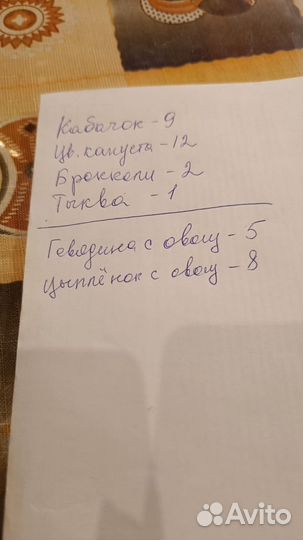 Кабачок - 9
Цв. капуста - 12
Брокколи - 2
Тыква - 1
Говядина с овощ - 5
Цыплёнок с овощ - 8
Avito